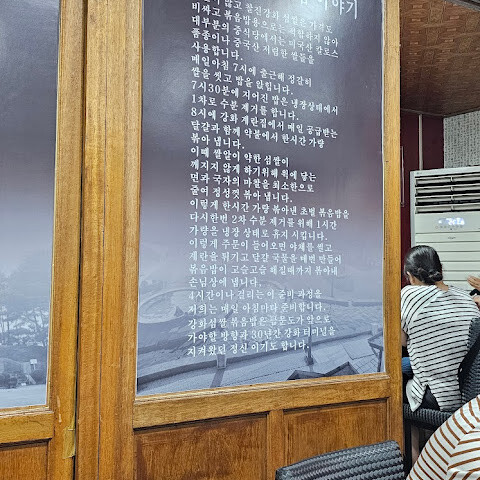 이야기
않고 찰진강화 섬쌀은 가격도
비싸고 볶음밥용으로는 적합하지 않아
대부분의 중식당에서는 미국산 칼로스
품종이나 중국산 저렴한 쌀들을
사용합니다.
매일아침 7시에 출근해 정갈히
쌀을 씻고 밥을 앉힙니다.
7시30분에 지어진 밥은 냉장상태에서
1차로 수분 제거를 합니다.
8시에 강화 계란집에서 매일 공급받는
달걀과 함께 약불에서 한시간 가량
볶아 냅니다.
이때 쌀알이 약한 섬쌀이
깨지지 않게 하기위해 웍에 닿는
면과 국자의 마찰을 최소한으로
줄여 정성껏 볶아 냅니다.
이렇게 한시간 가량 볶아낸 초벌 볶음밥을
다시한번 2차 수분 제거를 위해 1시간
가량을 냉장 상태로 휴지 시킵니다.
이렇게 주문이 들어오면 야채를 썰고
계란을 튀기고 달걀 국물을 매번 만들어
볶음밥이 고슬고슬 해질때까지 볶아내
손님상에 냅니다.
4시간이나 걸리는 이 준비 과정을
저희는 매일 아침마다 준비합니다.
강화섬쌀 볶음밥은 금문도가 앞으로
가야할 방향과 30년간 강화 터미널을
지켜왔던 정신 이기도 합니다.